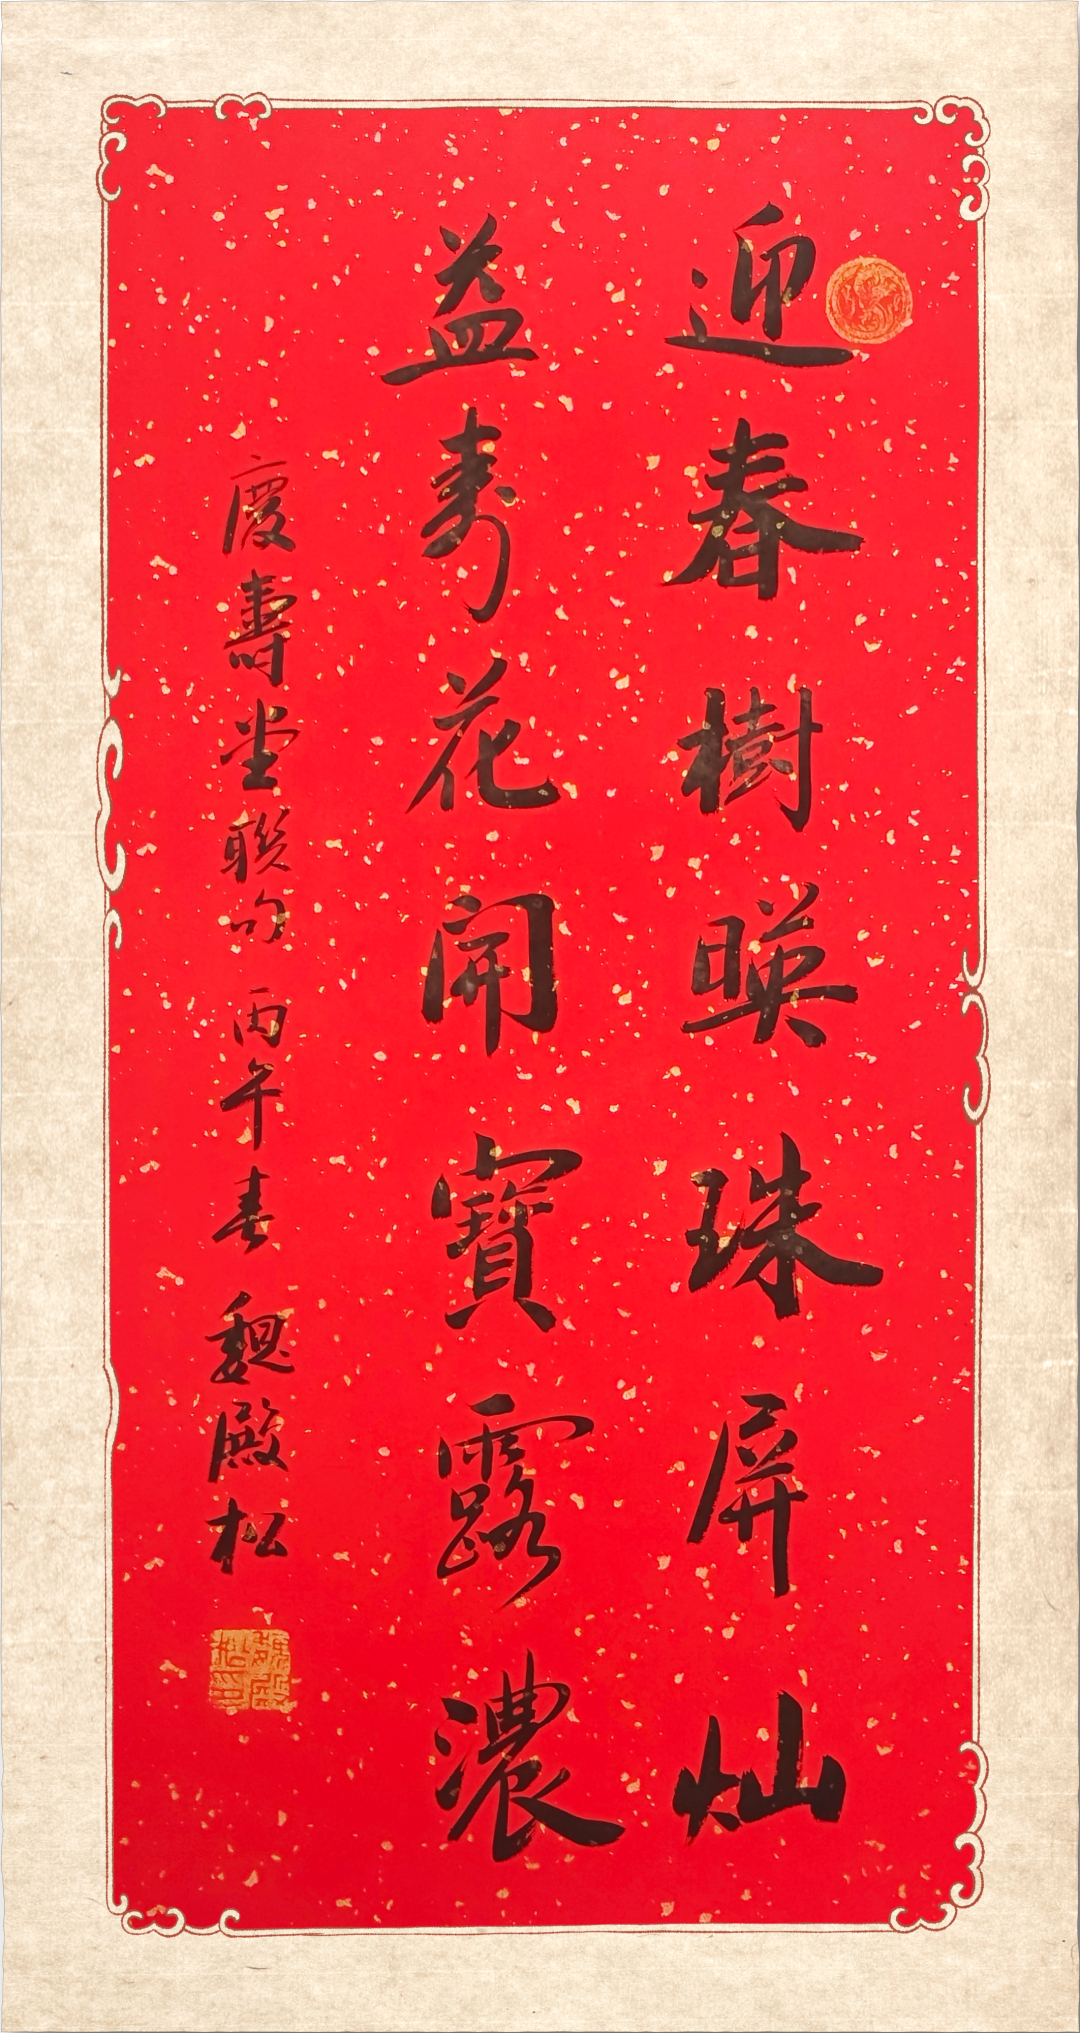 迎春樹暎珠屏灿
益寿花開寶露濃
慶壽堂聯句 丙午春 魏殿松
魏殿松印